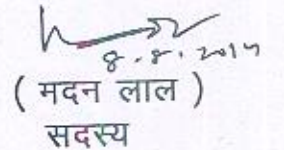 8.8.2014
( मदन लाल )
सदस्य